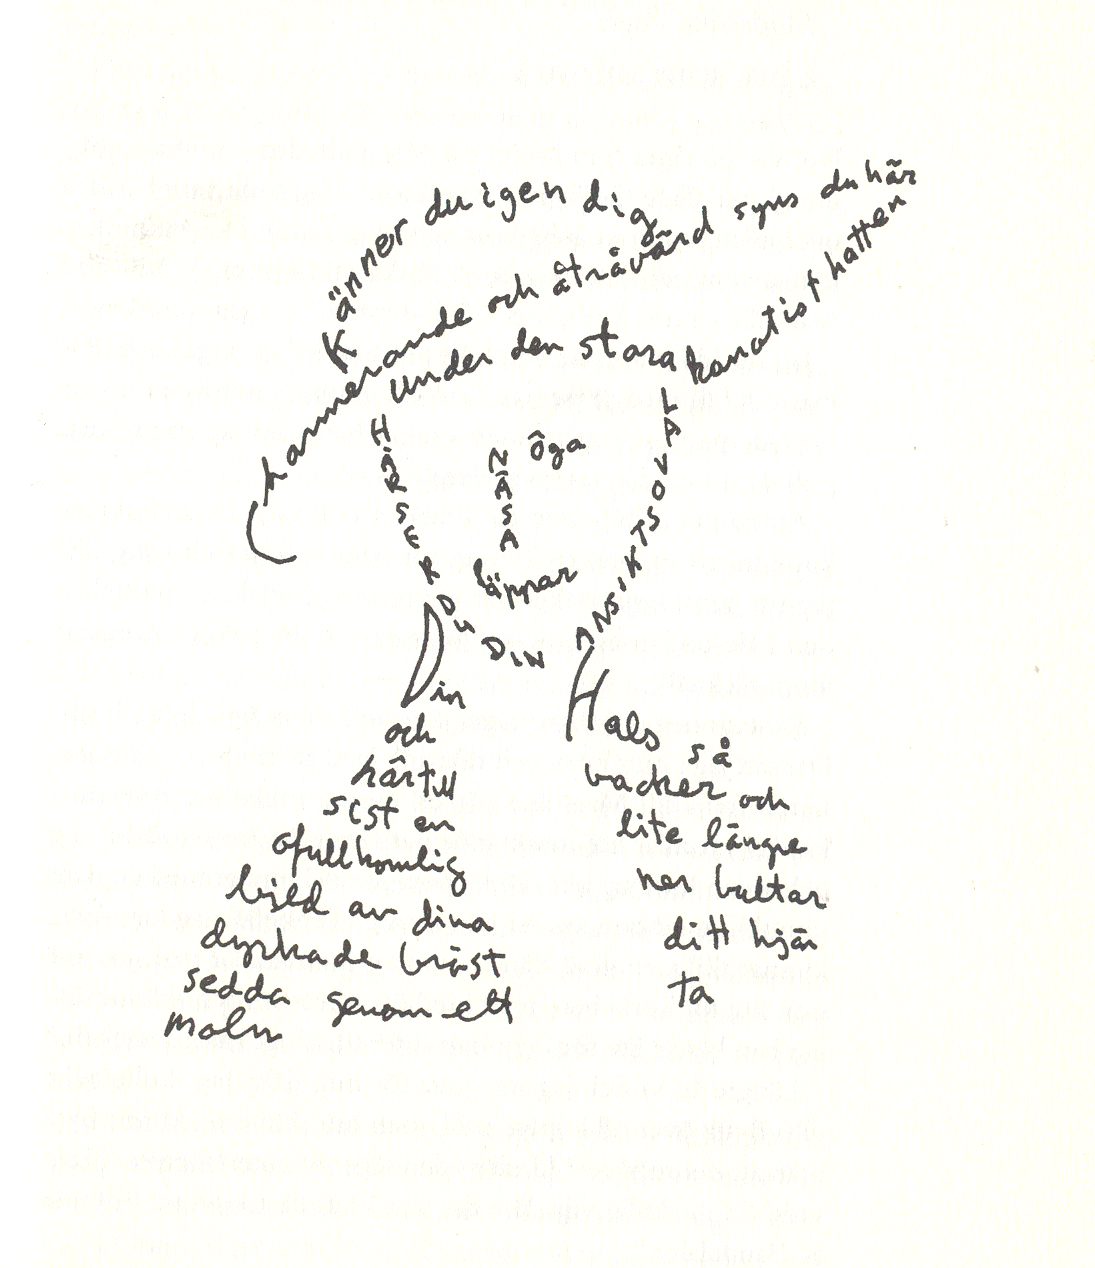 Känner du igen dig
charmerande och åtråvärd syns du här
under den stora kanotist hatten
öga
NÄSA
läppar
HÄR SER DU DIN ANSIKTSOVAL
Din
och
här till
sist en
ofullkomlig
bild av dina
dyrkade bröst
sedda genom ett
moln
Hals så
vacker och
lite längre
ner bultar
ditt hjär
ta